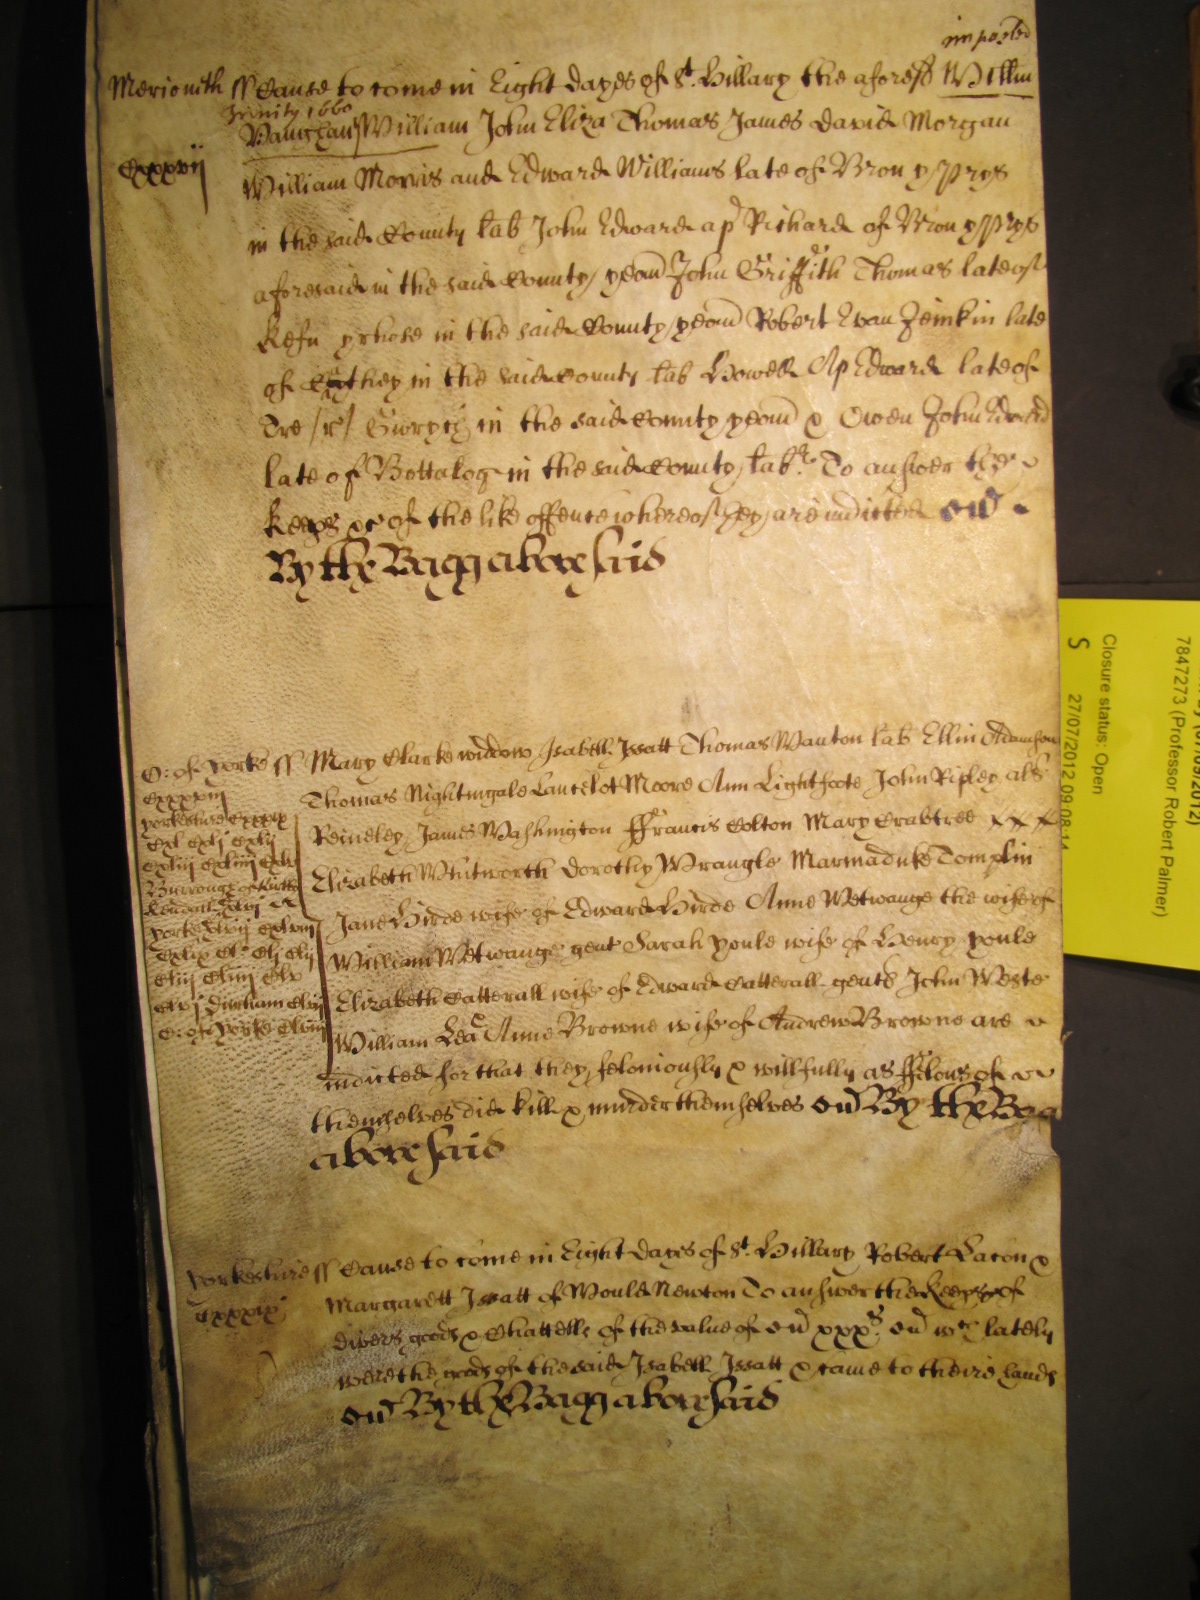 imparled
Merionith ss Cause to come in Eight dayes of St. Hillary the aforesd Willm
Trinity 1660
Vaughan William John Eliza Thomas James david Morgan
Cxxxvij
William Morris and Edward Williams late of Bron y prys
in the said County lab John Edward ap Richard of Bron y prys
aforesaid in the said County yeom John Griffith Thomas late of
Kefn yrhose in the said County yeom Robert Evan Jeinkin late
of in the said County lab Howell Ap Edward late of
Tre in the said County yeom & Owen John Edward
late of Bottalog in the said County labr. To answer the
Keeps &c of the like offence whereof they are indicted on
By the Bagg abovesaid
C: of Yorke ss Mary Clarke widdow Isabell Issatt Thomas Wanton lab Ellin Adamson
Cxxxviij
Thomas Nightingale Lancelot Moore Ann Lightfoote John Ripley als
Yorkeshire Cxxxix
Reindley James Washington ffrancis Colton Mary Crabtree x x x
Cxl Cxlj Cxlij
Cxliij Cxliiij Cxlv
Elizabeth Wentworth dorothy Wrangle Marmaduke Tomplin
Burrough of Kirkby
Kendall Cxlvj &c
Jane Hirde wife of Edward Hirde Anne Wetwange the wife of
Yorke Cxlvij Cxlviij
William Wetwange gent Sarah Poule wife of Henry Poule
Cxlix Cl: Clj Clij
Cliij Cliiij Clv
Elizabeth Catterall wife of Edward Catterall gent John Weste
Clvj Durham Clvij
C: of Yorke Clviij
William Lea Anne Browne wife of Andrew Browne are
indicted for that they feloniously & willfully as ffelons of
themselves did kill & murder themselves on By the Bag
abovesaid
Yorkeshire ss Cause to come in Eight dayes of St. Hillary Robert Lacon &
Cxxxix
Margarett Issatt of Would Newton To answer the Keeps &c of
divers goods & Chattells of the value of on xxxs. on wch lately
were the goods of the said Isabell Issatt & came to their hands
on By the Bagg abovesaid
7847273 (Professor Robert Palmer)
Closure status: Open
S 27/07/2012 09:08:14